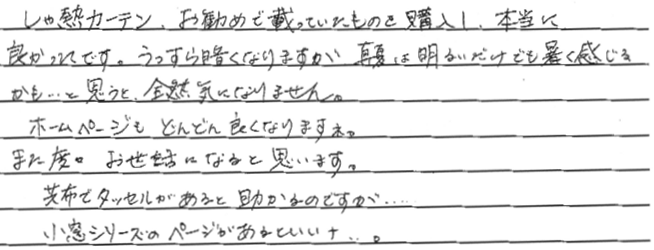 しゃ熱カーテン、お勧めで載っていたものを購入し、本当に
良かったです。うっすら暗くなりますが 真夏は明るいだけでも暑く感じる
かも…と思うと、全然気になりません。
ホームページも どんどん良くなりますね。
また度々 お世話になると思います。
共布でタッセルがあると助かるのですが……
小窓シリーズのページがあるといいナ…。